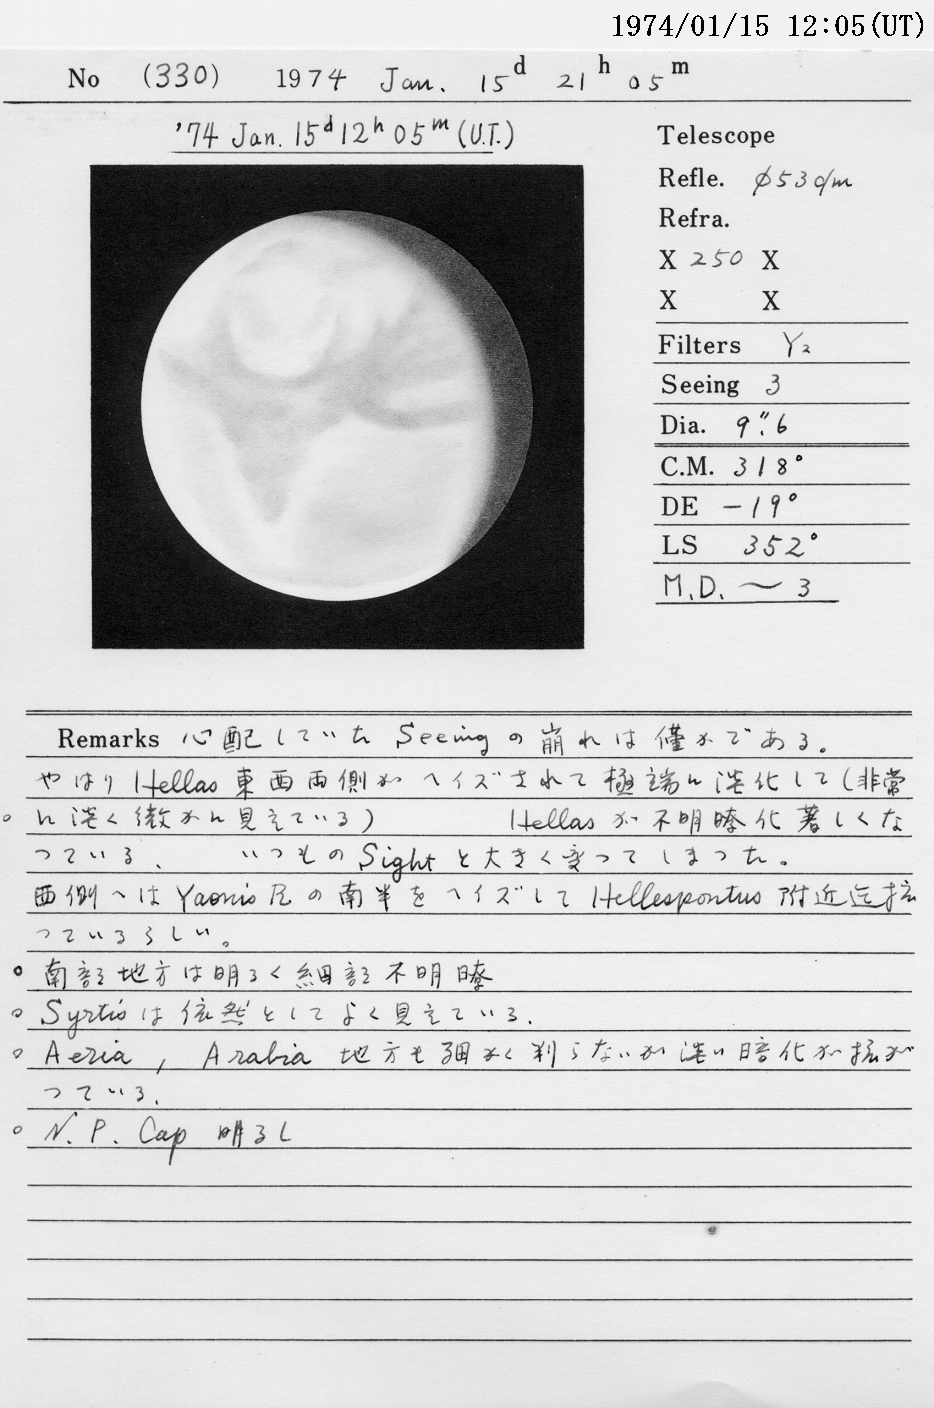 1974/01/15 12:05(UT)
No (330) 1974 Jan. 15d 21h 05m
'74 Jan. 15d 12h 05m (U.T.)
Telescope
Refle. φ53cm
Refra.
X 250 X
X X
Filters Y2
Seeing 3
Dia. 9".6
C.M. 318°
DE -19°
LS 352°
M.D. ~ 3
Remarks 心配していた Seeingの崩れは僅かである。
やはりHellas東西両側がヘイズされて極端に淡化して(非常
に淡く微かに見えている) Hellasが不明瞭化著しくな
っている、 いつものSightと大きく変ってしまった。
西側へはYaonis 尺の南半をヘイズしてHellespontus附近迄拡
っているらしい。
南部地方は明るく細部不明瞭
Syrtisは依然としてよく見えている.
Aeria, Arabia 地方も細かく判らないが淡い暗化が拡が
っている.
N. P. Cap 明るし